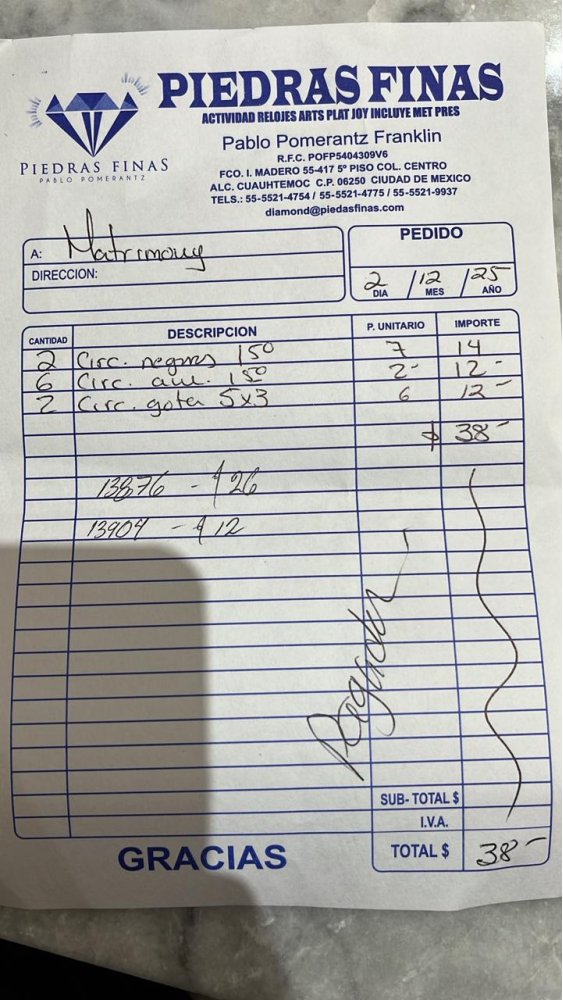 PIEDRAS FINAS
ACTIVIDAD RELOJES ARTS PLAT JOY INCLUYE MET PRES
PIEDRAS FINAS
PABLO POMERANTZ
Pablo Pomerantz Franklin
R.F.C. POFP5404309V6
FCO. I. MADERO 55-417 5º PISO COL. CENTRO
ALC. CUAUHTEMOC C.P. 06250 CIUDAD DE MEXICO
TELS.: 55-5521-4754 / 55-5521-4775 / 55-5521-9937
diamond@piedasfinas.com
A: Matrimony
DIRECCION:
PEDIDO
2 /12 /25
DIA MES AÑO
CANTIDAD DESCRIPCION P. UNITARIO IMPORTE
2 Circ. negras 150 7 14
6 Circ. 150 2- 12-
2 Circ. gota 5x3 6 12-
$ 38-
13876 - $26
13904 - $12
Pagado
SUB- TOTAL $
I.V.A.
TOTAL $ 38-
GRACIAS